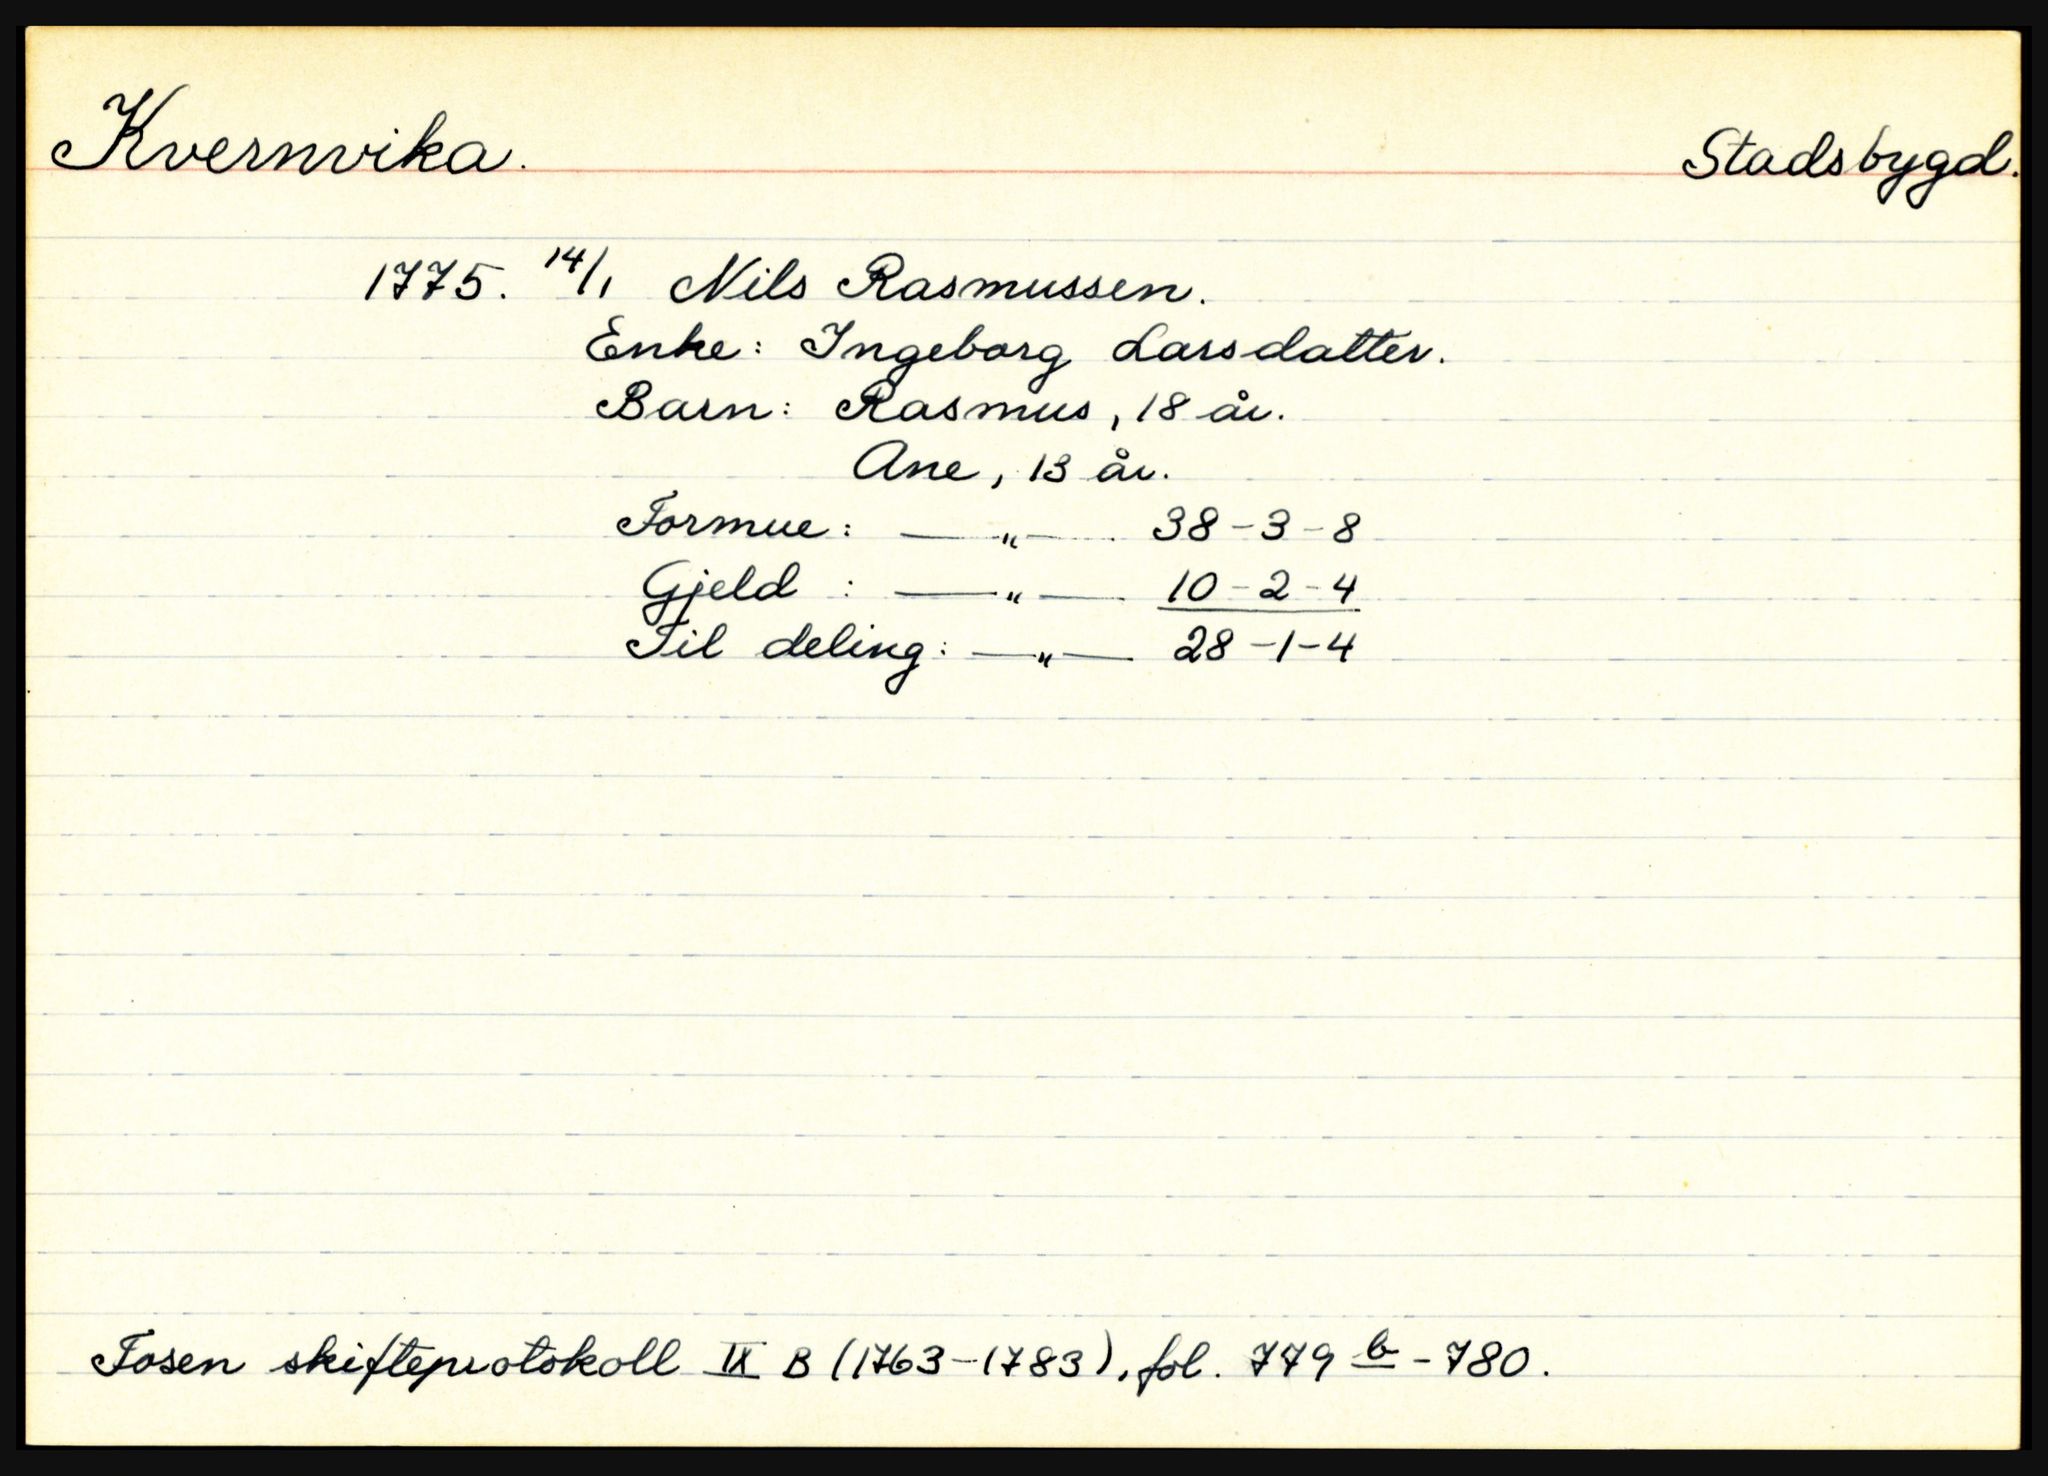 Kvernvika. Stadsbygd.
1775. 14/1 Nils Rasmussen.
Enke: Ingeborg Larsdatter.
Barn: Rasmus, 18 år.
Ane, 13 år.
Formue: —„— 38-3-8
Gjeld : —„— 10-2-4
Til deling: —„— 28-1-4
Fosen skifteprotokoll IX B (1763-1783), fol. 779 b - 780.